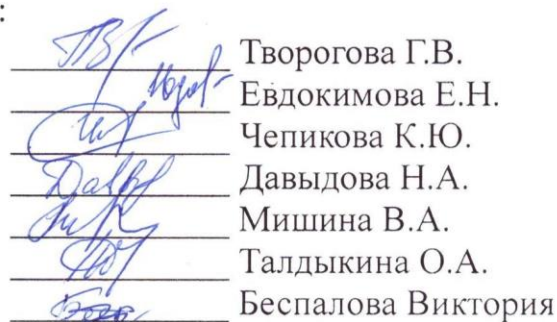 :
Творогова Г.В.
Евдокимова Е.Н.
Чепикова К.Ю.
Давыдова Н.А.
Мишина В.А.
Талдыкина О.А.
Беспалова Виктория